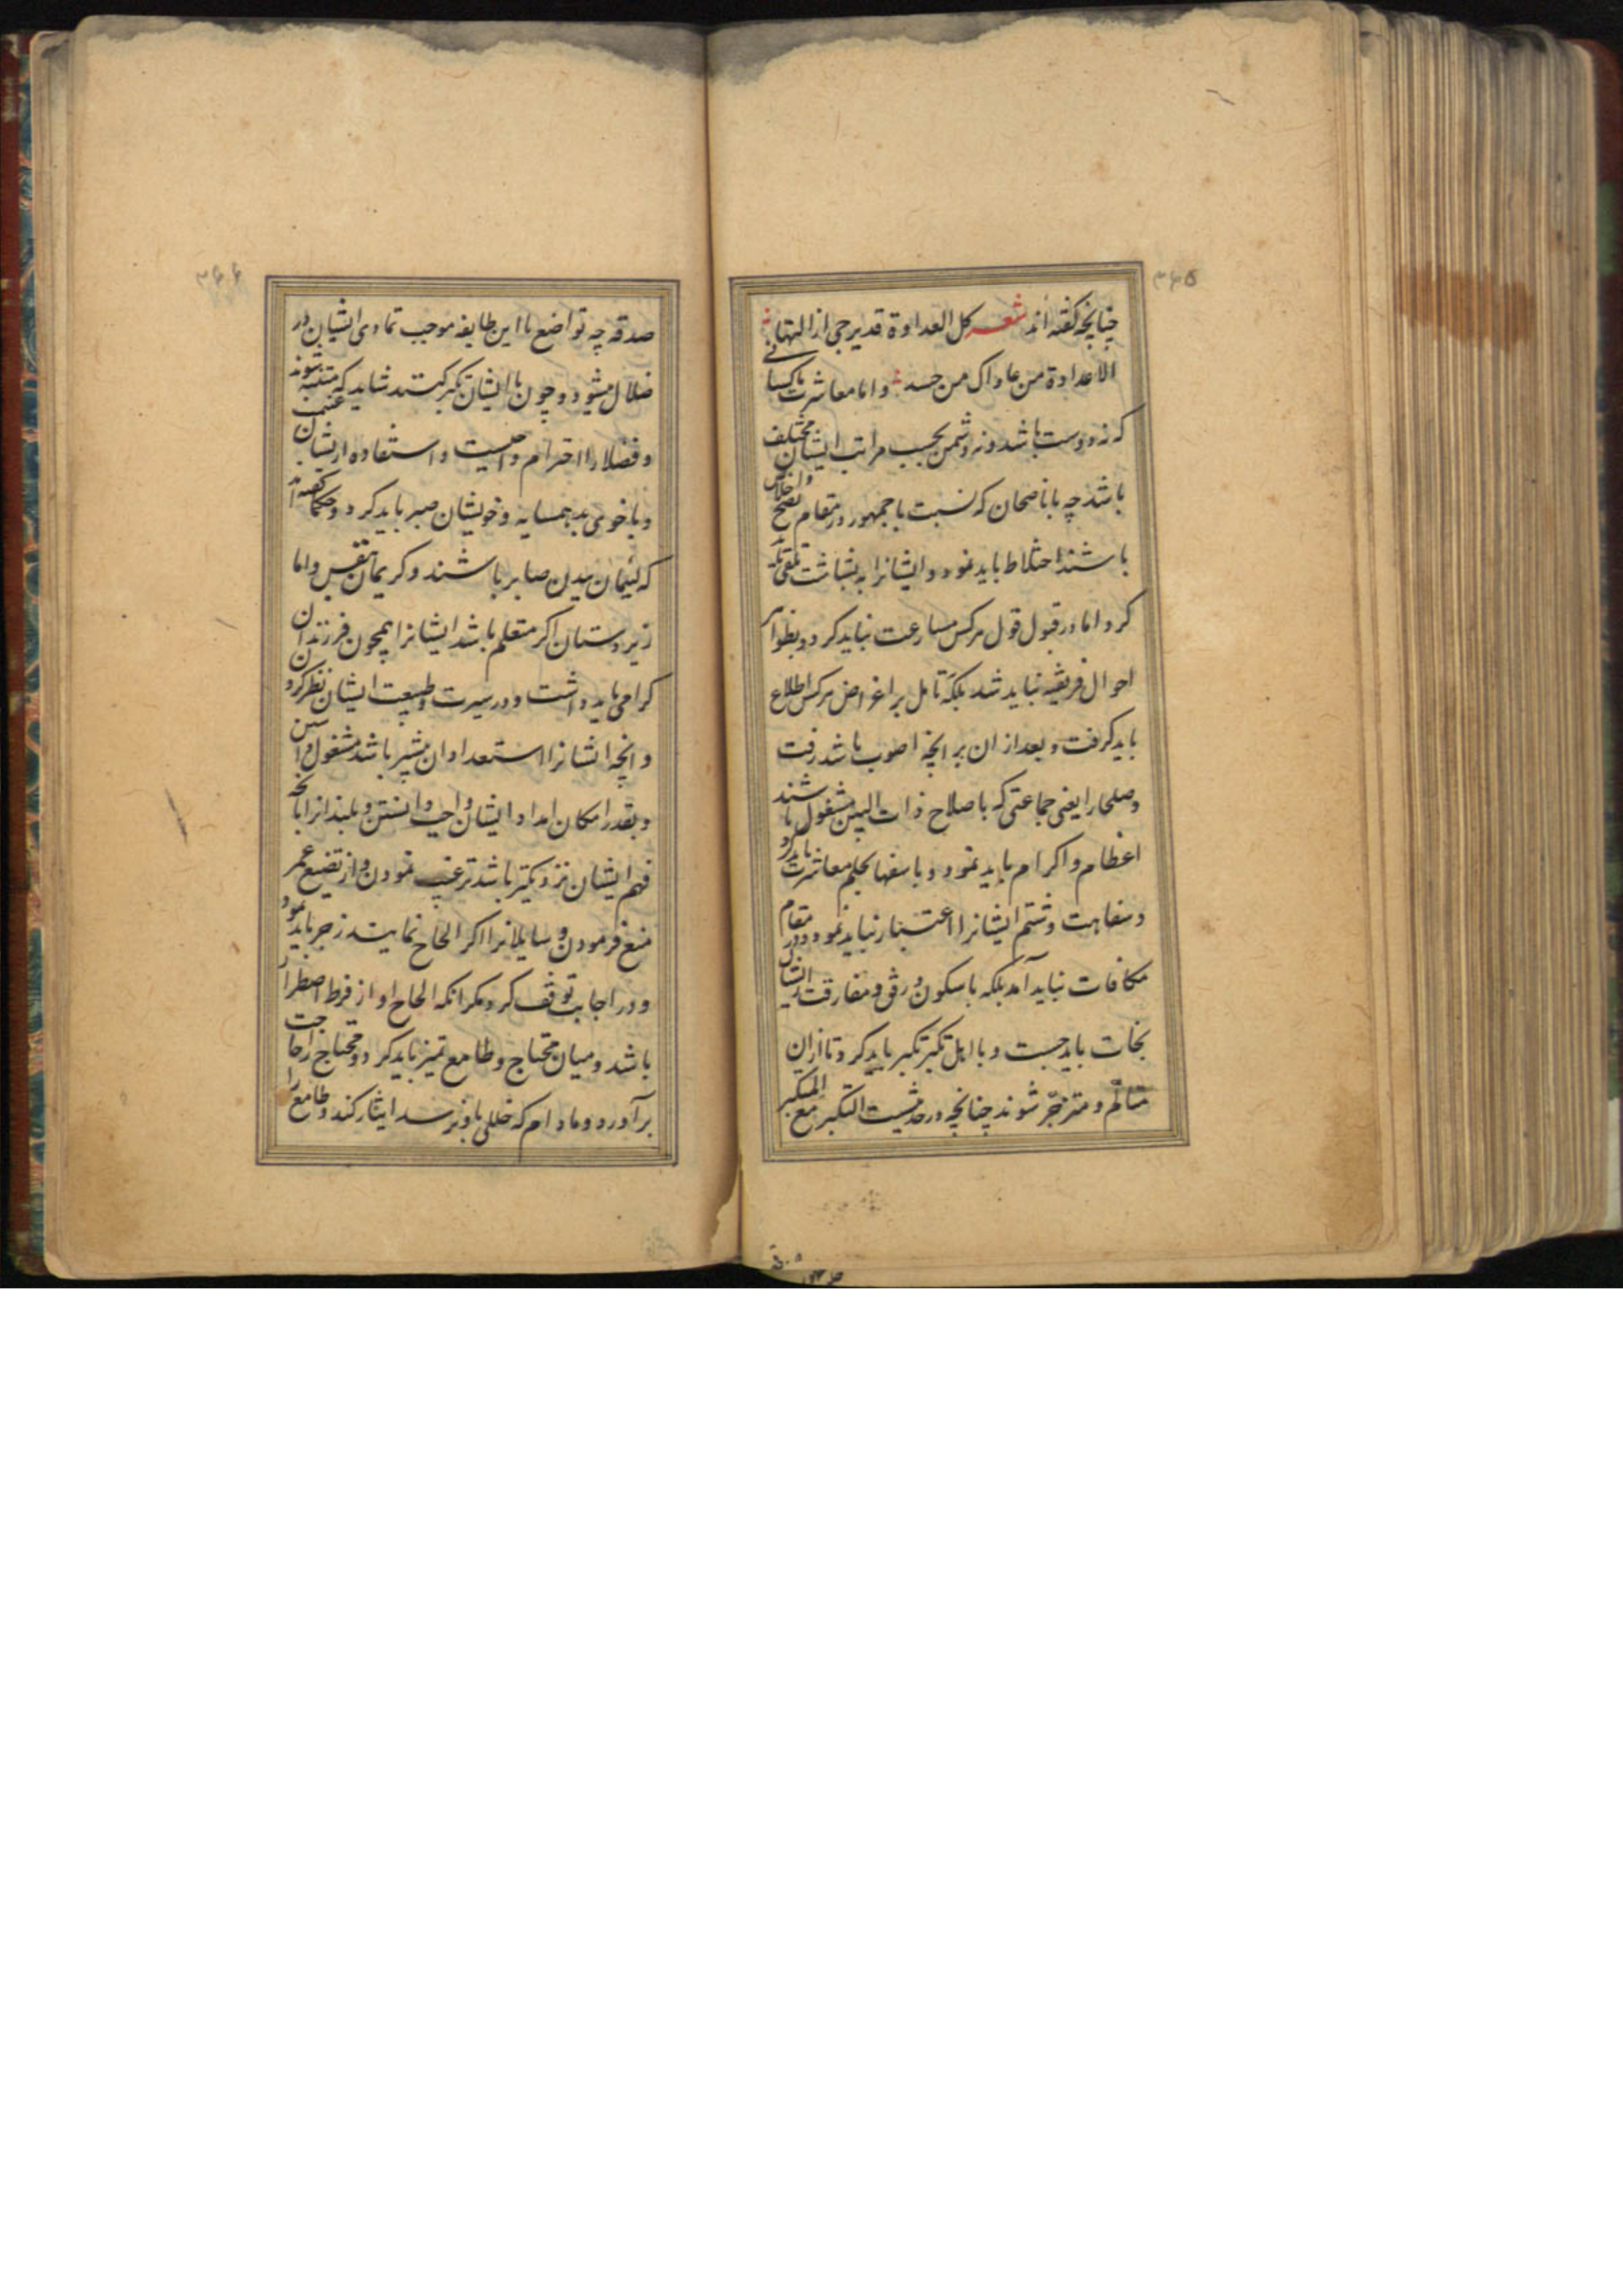 ۳۶۵
چنانچه گفته‌اند شعر کل العداوة قد یرجی ازالتها
الا عداوة من عاداک من حسد و اما معاشرت با کسانی
که نه دوست باشد و نه دشمن بحسب مراتب ایشان مختلف
باشد چه با ناصحان که نسبت با جمهور در مقام نصح و اخلاص
باشند اختلاط باید نمود و ایشانرا به بشاشت تلقی باید
کرد اما در قبول قول هرکس مسارعت نباید کرد و بظواهر
احوال فریفته نباید شد بلکه تامل بر اغراض هرکس اطلاع
باید گرفت و بعد از ان بر انچه اصوب باشد رفت
و صلحا را یعنی جماعتی که باصلاح ذات البین مشغول باشند
اعظام و اکرام باید نمود و با سفها بحلم معاشرت باید کرد
و سفاهت و شتم ایشانرا اعتبار نباید نمود و در مقام
مکافات نباید آمد بلکه با سکون و رفق و مفارقت ایشان
نجات باید جست و با اهل تکبر تکبر باید کرد تا از ان
متالم و منزجر شوند چنانچه در حدیثست التکبر مع المتکبر
۳۶۶
صدقه چه تواضع با این طایفه موجب تمادی ایشان در
ضلال میشود و چون با ایشان تکبر کنند شاید که متنبه شوند
و فضلا را احترام و استفاده از ایشان غنیمت
و با خوی بد همسایه و خویشان صبر باید کرد و حکما گفته‌اند
که لئیمان ببدن صابر باشند و کریمان بنفس و اما
زیردستان اگر متعلم باشد ایشانرا همچون فرزندان
گرامی باید داشت و در سیرت و طبیعت ایشان نظر کردن
و انچه ایشانرا استعداد ان بیشتر باشد مشغول داشتن
و بقدر امکان امداد ایشان واجب دانستن و بلید انرا بانچه
فهم ایشان نزدیکتر باشد ترغیب نمودن و از تضییع عمر
منع فرمودن و سایلانرا اگر الحاح نمایند زجر باید نمود
و در اجابت توقف کرد مگر انکه الحاح او از فرط اضطرار
باشد و میان محتاج و طامع تمیز باید کرد و محتاج را حاجت
برآورد و مادام که خللی باو نرسد ایثار کند و طامع را